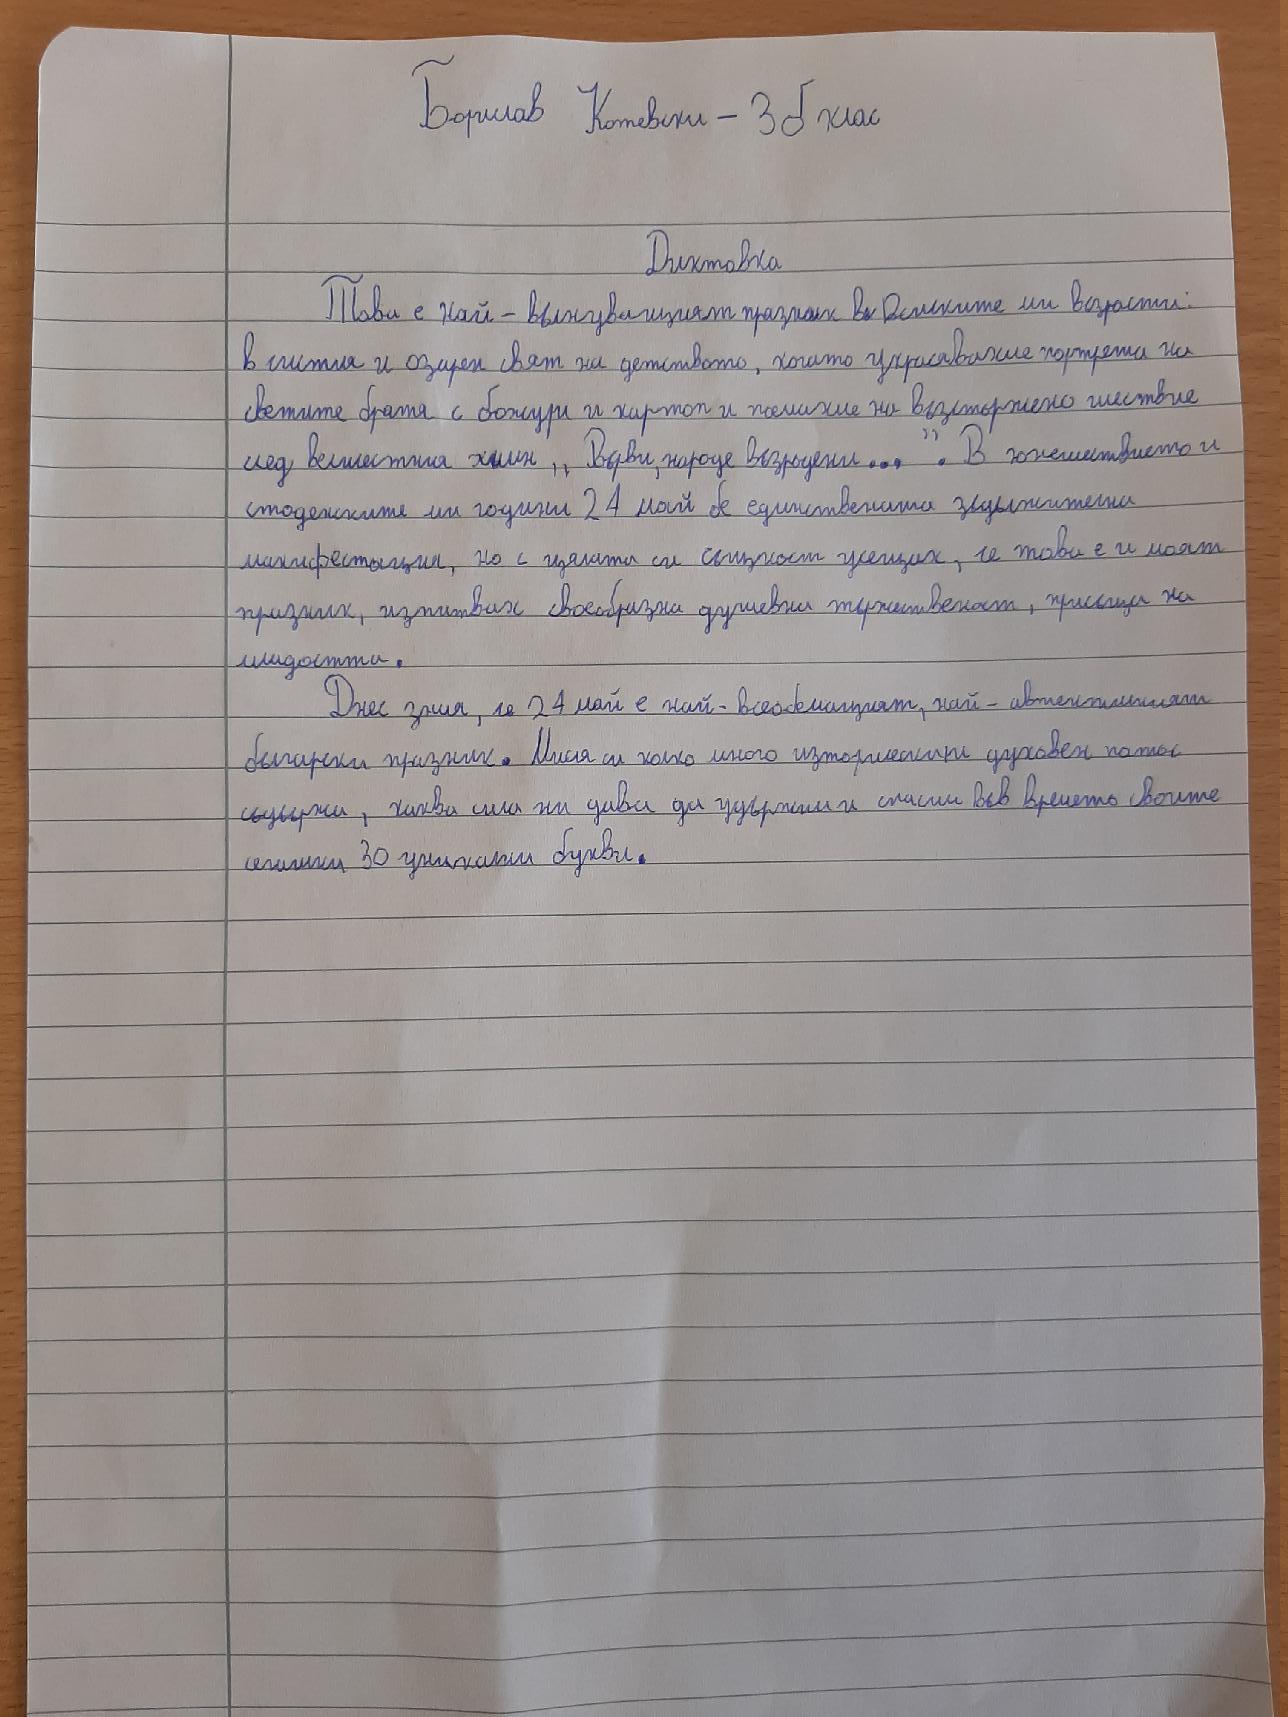 Борислав Котевски - 3 б клас
Диктовка
Това е най - вълнуващият празник във всичките ми възрасти:
в чистия и озарен свят на детството, когато украсявахме портрета на
светите братя с божури и картон и поемахме на възторжено шествие
след величествия химн „Върви, народе възродени...". В юношеството и
студентските ми години 24 май бе единствената задължителна
манифестация, но с цялата си същност усещах, че това е и моят
празник, изпитвах своеобразна душевна тържественост, присъща на
младостта.
Днес зная, че 24 май е най - всеобемащият, най - автентичният
български празник. Мисля си колко много исторически духовен патос
съдържа, каква сила ни дава да удържим и спасим във времето своите
30 уникални букви.